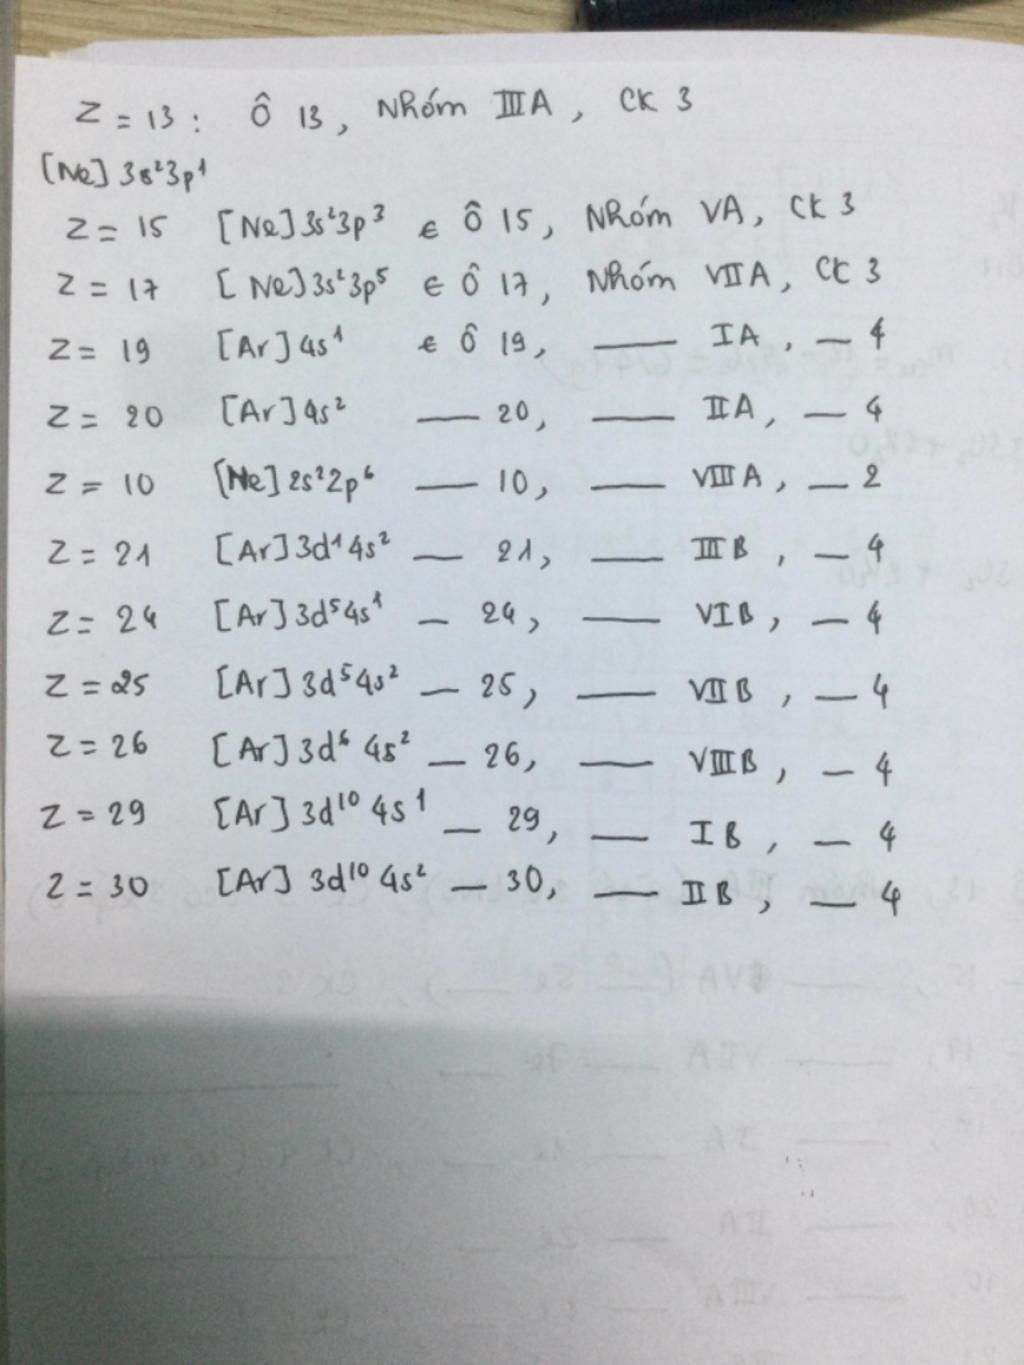 Z = 13 : Ô 13, Nhóm IIIA, CK 3
[Ne] 3s²3p¹
Z = 15 [Ne] 3s²3p³ ∈ Ô 15, Nhóm VA, CK 3
Z = 17 [Ne] 3s²3p⁵ ∈ Ô 17, Nhóm VIIA, CK 3
Z = 19 [Ar] 4s¹ ∈ Ô 19, — IA, — 4
Z = 20 [Ar] 4s² — 20, — IIA, — 4
Z = 10 [Ne] 2s²2p⁶ — 10, — VIIIA, — 2
Z = 21 [Ar] 3d¹4s² — 21, — IIIB, — 4
Z = 24 [Ar] 3d⁵4s¹ — 24, — VIB, — 4
Z = 25 [Ar] 3d⁵4s² — 25, — VIIB, — 4
Z = 26 [Ar] 3d⁶ 4s² — 26, — VIIIB, — 4
Z = 29 [Ar] 3d¹⁰ 4s¹ — 29, — IB, — 4
Z = 30 [Ar] 3d¹⁰ 4s² — 30, — IIB, — 4